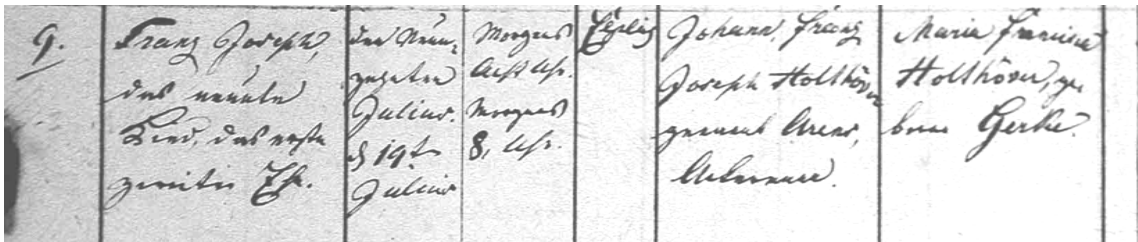 9.
Franz Joseph,
das neunte
Kind, das erste
zweiter Ehe.
den Neun-
zehnten
Julius.
d 19t
Julius
Morgens
Acht Uhr.
Morgens
8, Uhr.
Ehelich
Johann, Franz
Joseph Holthöver
genannt Arens,
Ackersmann.
Maria Francisca
Holthöver, ge
borne Gerke.